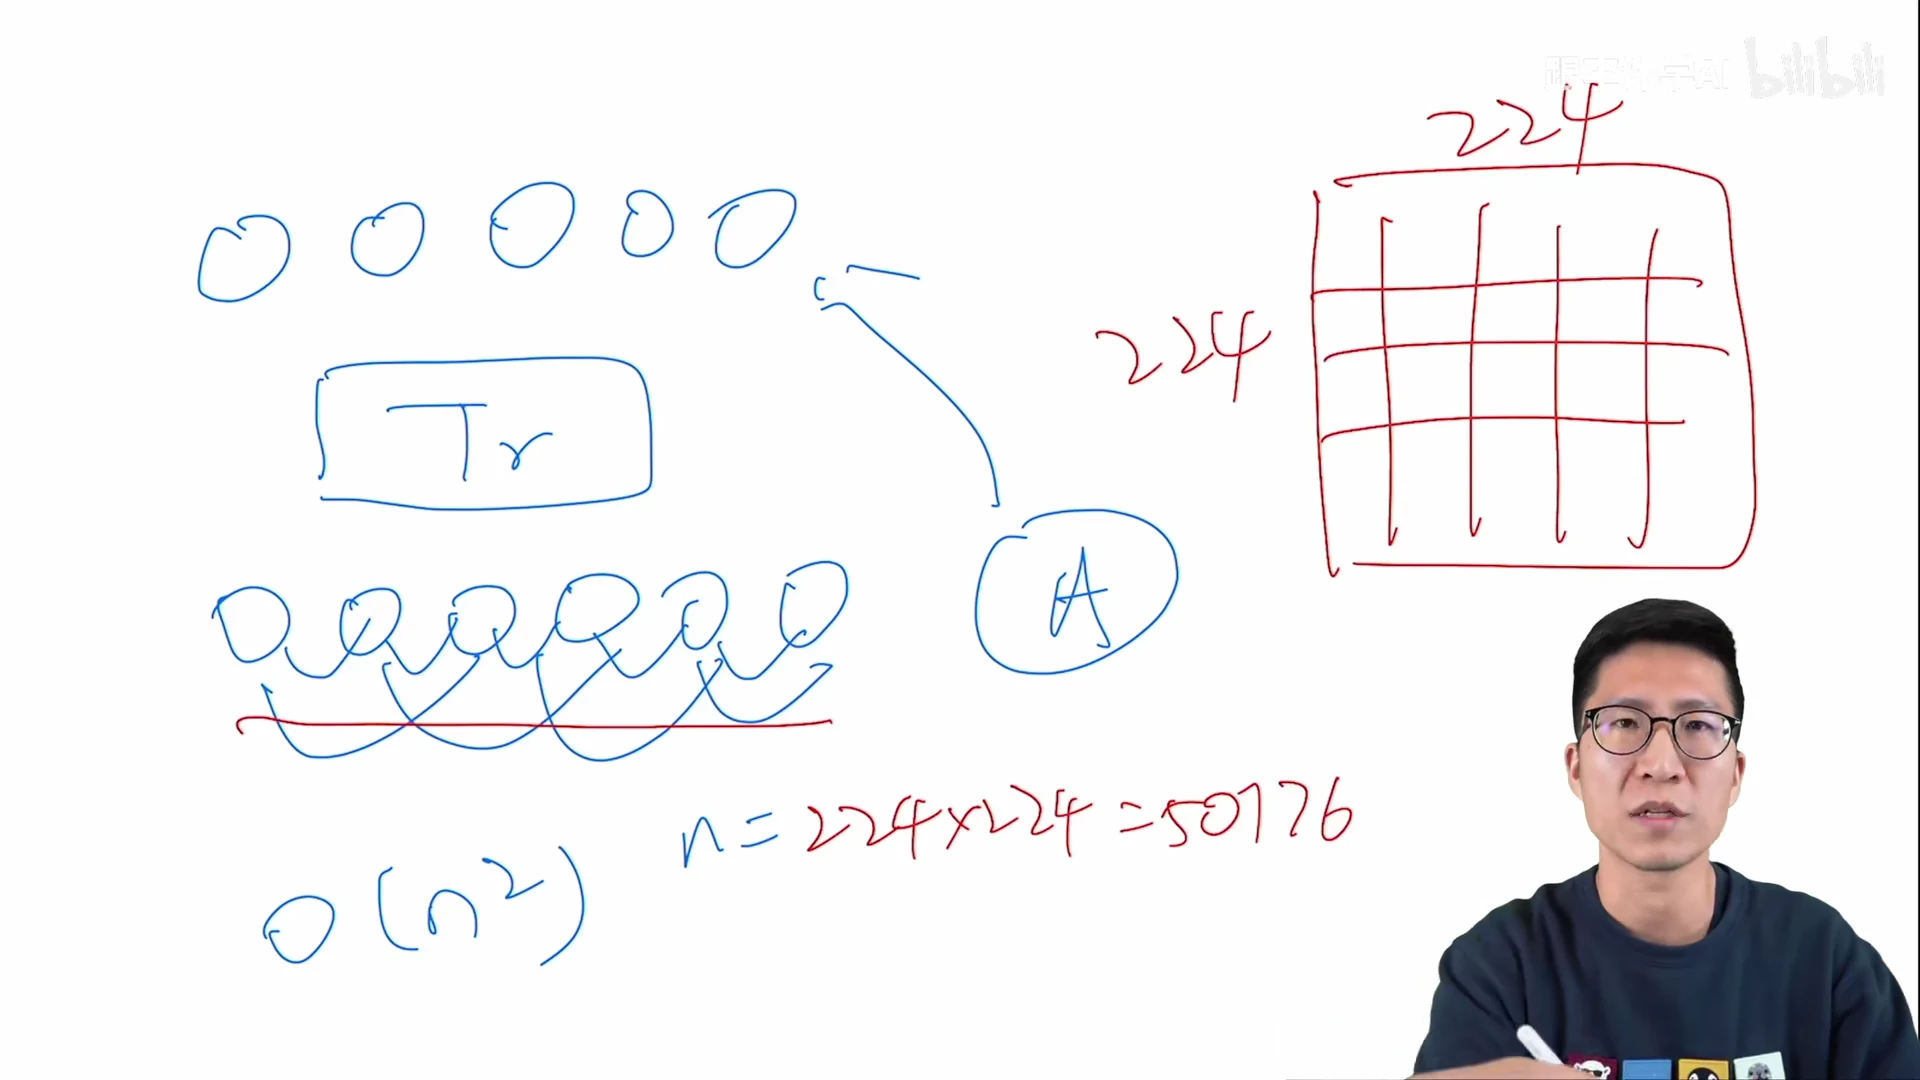 bilibili
224
224
Tr
A
n = 224×224 = 50176
O(n²)